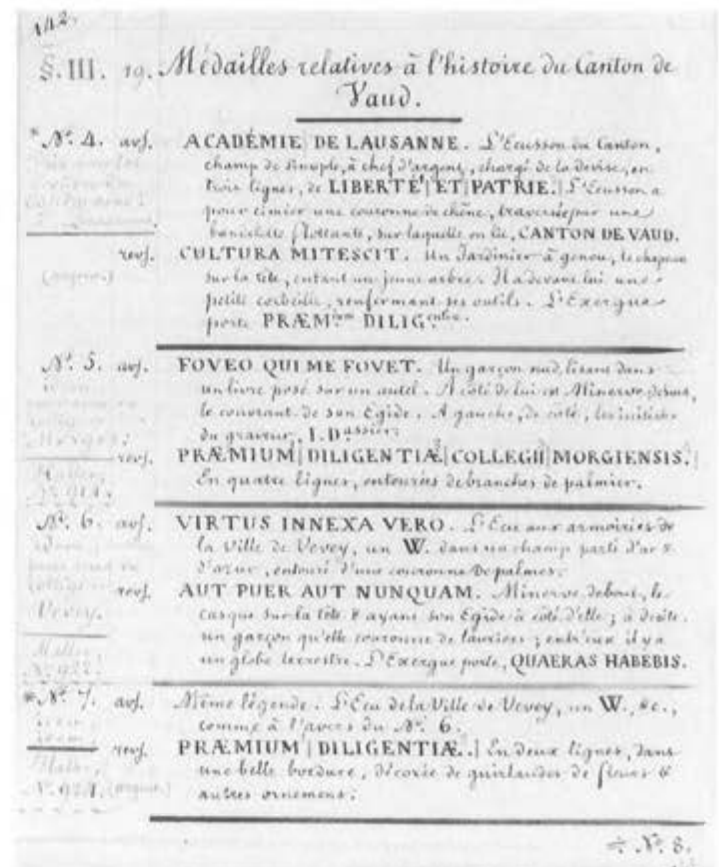 142.
§. III. 19. Médailles relatives à l'histoire du Canton de
Vaud.
* Nº. 4. avſ. ACADÉMIE | DE LAUSANNE. L'Ecusson du Canton,
champ de sinople, à chef d'argent, chargé de la devise, en
trois lignes, de LIBERTÉ | ET | PATRIE. | L'Ecusson a
pour cimier une couronne de chêne, traversée par une
banderolle flottante, sur laquelle on lit, CANTON DE VAUD.
revſ. CULTURA MITESCIT. Un Jardinier à genou, le chapeau
(argent.) sur la tête, entant un jeune arbre. Il a devant lui une
petite corbeille, renfermant ses outils. L'Exergue
porte PRÆMium DILIGentiæ.
Nº. 5. avſ. FOVEO QUI ME FOVET. Un garçon nud, lisant dans
un livre posé sur un autel. A côté de lui est Minerve debout,
le couvrant de son Egide. A gauche, de côté, les initiales
du graveur, I. Dassier.
Morges.
revſ. PRÆMIUM | DILIGENTIÆ | COLLEGII | MORGIENSIS. |
Haller, En quatre lignes, entourées de branches de palmier.
Nº. 914.
Nº. 6. avſ. VIRTUS INNEXA VERO. L'Ecu aux armoiries de
la Ville de Vevey, un W. dans un champ parti d'or &
d'azur, entouré d'une couronne de palmes.
revſ. AUT PUER AUT NUNQUAM. Minerve debout, le
Vevey. casque sur la tête & ayant son Egide à côté d'elle; à droite
un garçon qu'elle couronne de lauriers; entr'eux il y a
Haller, un globe terrestre. L'Exergue porte, QUAERAS HABEBIS.
Nº. 922.
* Nº. 7. avſ. Même légende. L'Ecu de la Ville de Vevey, un W., &c.,
comme à l'avers du Nº. 6.
revſ. PRÆMIUM | DILIGENTIÆ. | En deux lignes, dans
Haller, une belle bordure, décorée de guirlandes de fleurs &
Nº. 924. (argent.) autres ornemens.
÷ Nº. 8.